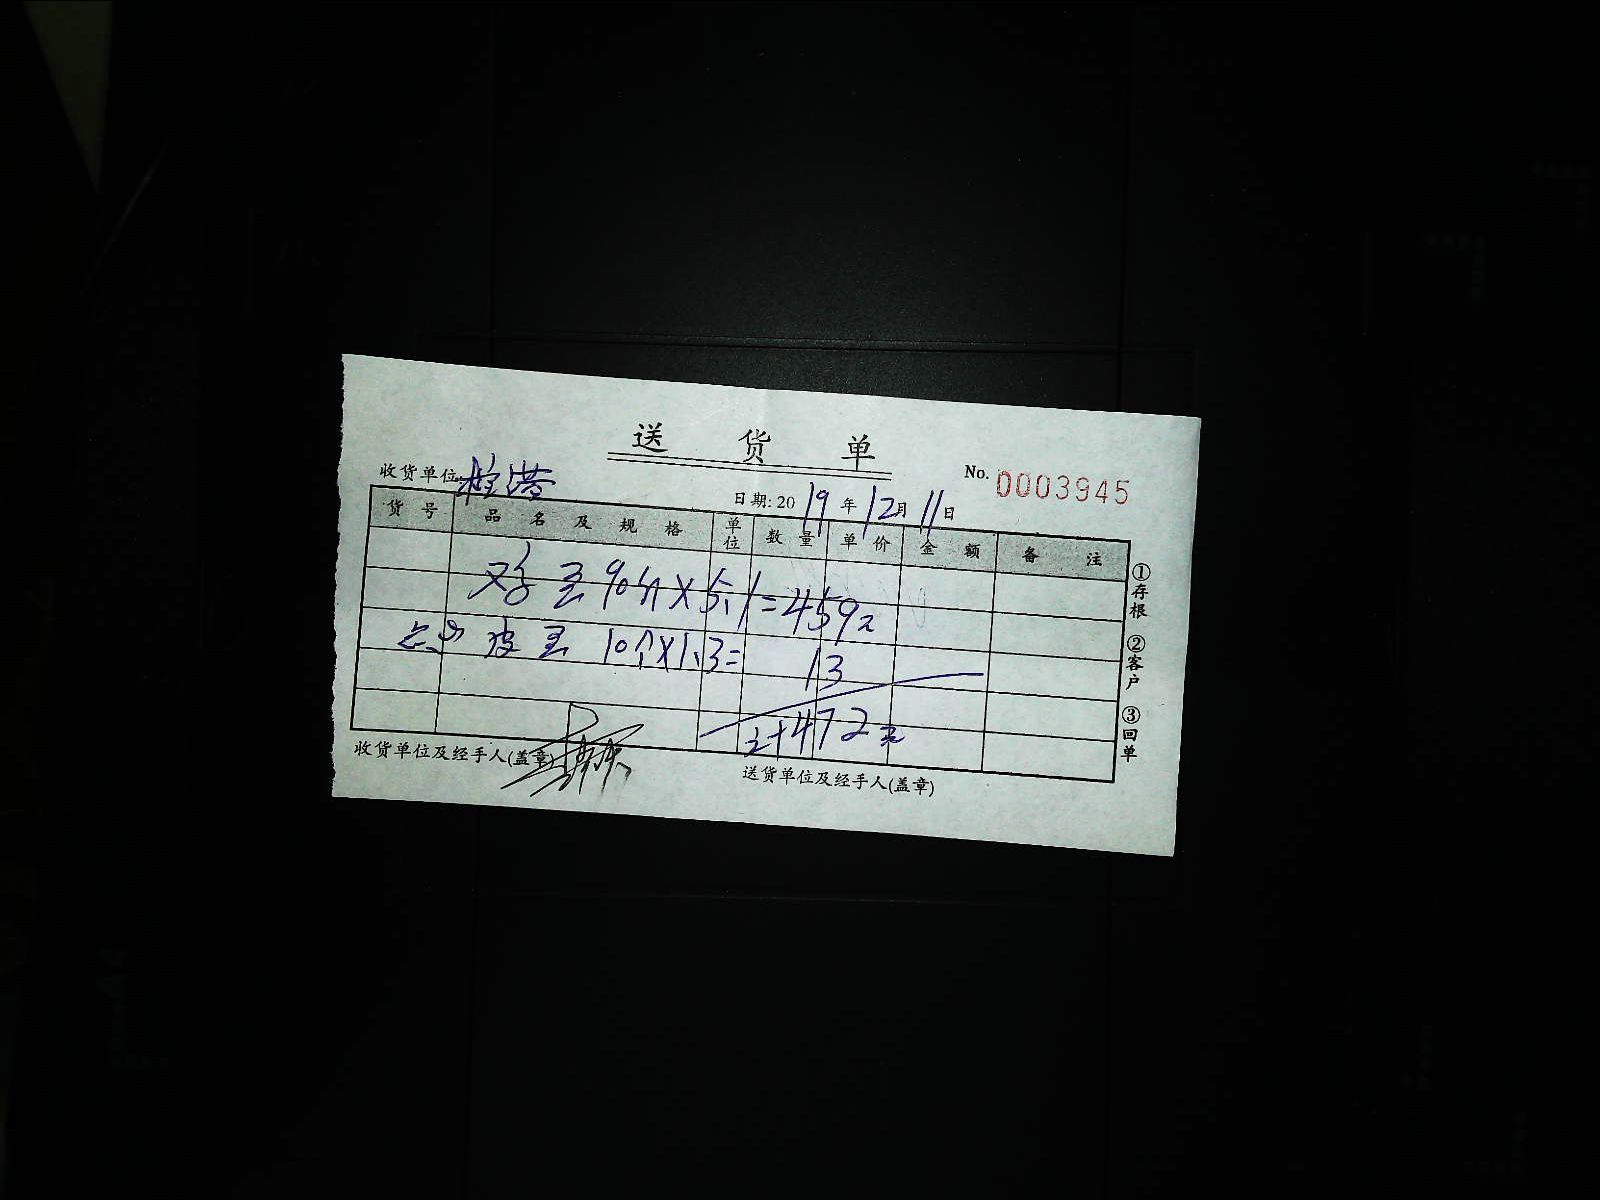 送 货 单
收货单位:
No. 0003945
日期: 2019 年 12 月 11 日
货号 品名及规格 单位 数量 单价 金额 备注
鸡蛋 90斤 X 5.1 = 459元
皮蛋 10个 X 1.3 = 13
计 472元
收货单位及经手人(盖章)
送货单位及经手人(盖章)
①存根 ②客户 ③回单